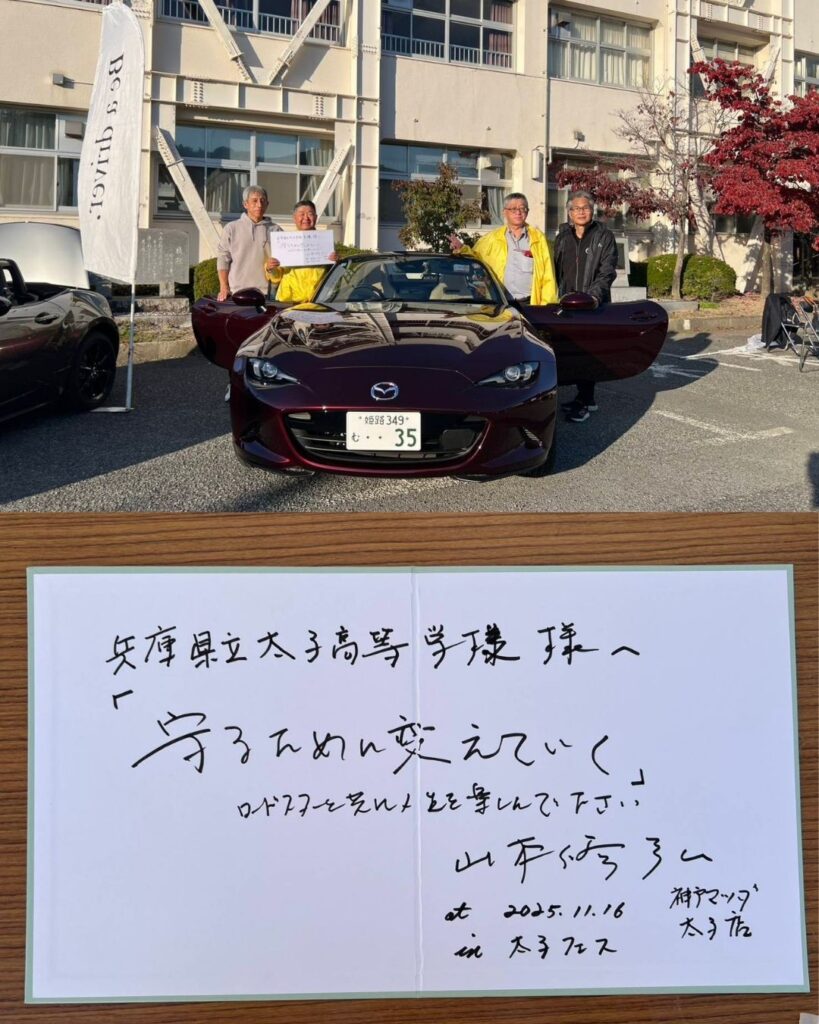 Be a driver.
姫路 349
む ・・35
兵庫県立太子高等学様 様へ
「守るために変えていく」
ロードスターと共に人生を楽しんで下さい
山本修弘
at 2025.11.16
in 太子フェス
神戸マツダ
太子店